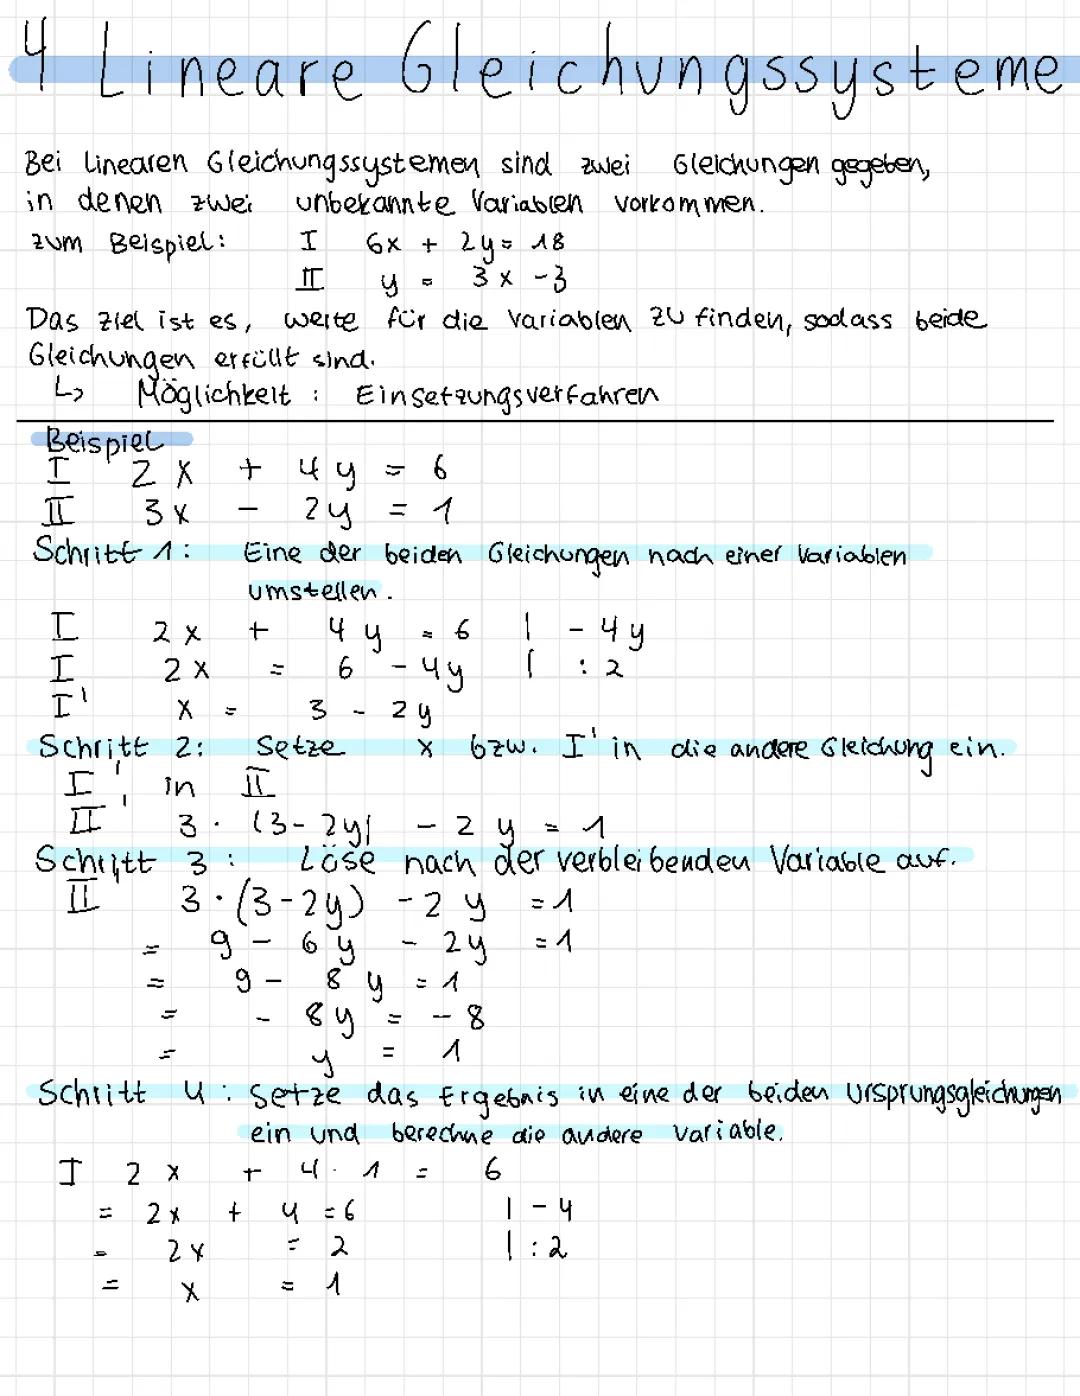 4 Lineare Gleichungssysteme
Bei linearen Gleichungssystemen sind zwei Gleichungen gegeben,
in denen zwei unbekannte Variablen vorkommen.
zum Beispiel: I 6x + 2y = 18
II y = 3x - 3
Das Ziel ist es, werte für die Variablen zu finden, sodass beide
Gleichungen erfüllt sind.
↳ Möglichkeit : Einsetzungsverfahren
Beispiel
I 2x + 4y = 6
II 3x - 2y = 1
Schritt 1: Eine der beiden Gleichungen nach einer Variablen
umstellen.
I 2x + 4y = 6 | - 4y
I 2x = 6 - 4y | : 2
I' x = 3 - 2y
Schritt 2: Setze x bzw. I' in die andere Gleichung ein.
I' in II
II' 3 · (3-2y) - 2y = 1
Schritt 3: Löse nach der verbleibenden Variable auf.
II' 3 · (3-2y) - 2y = 1
= 9 - 6y - 2y = 1
= 9 - 8y = 1
= - 8y = - 8
= y = 1
Schritt 4: Setze das Ergebnis in eine der beiden Ursprungsgleichungen
ein und berechne die andere Variable.
I 2x + 4 · 1 = 6
= 2x + 4 = 6 | - 4
= 2x = 2 | : 2
= x = 1